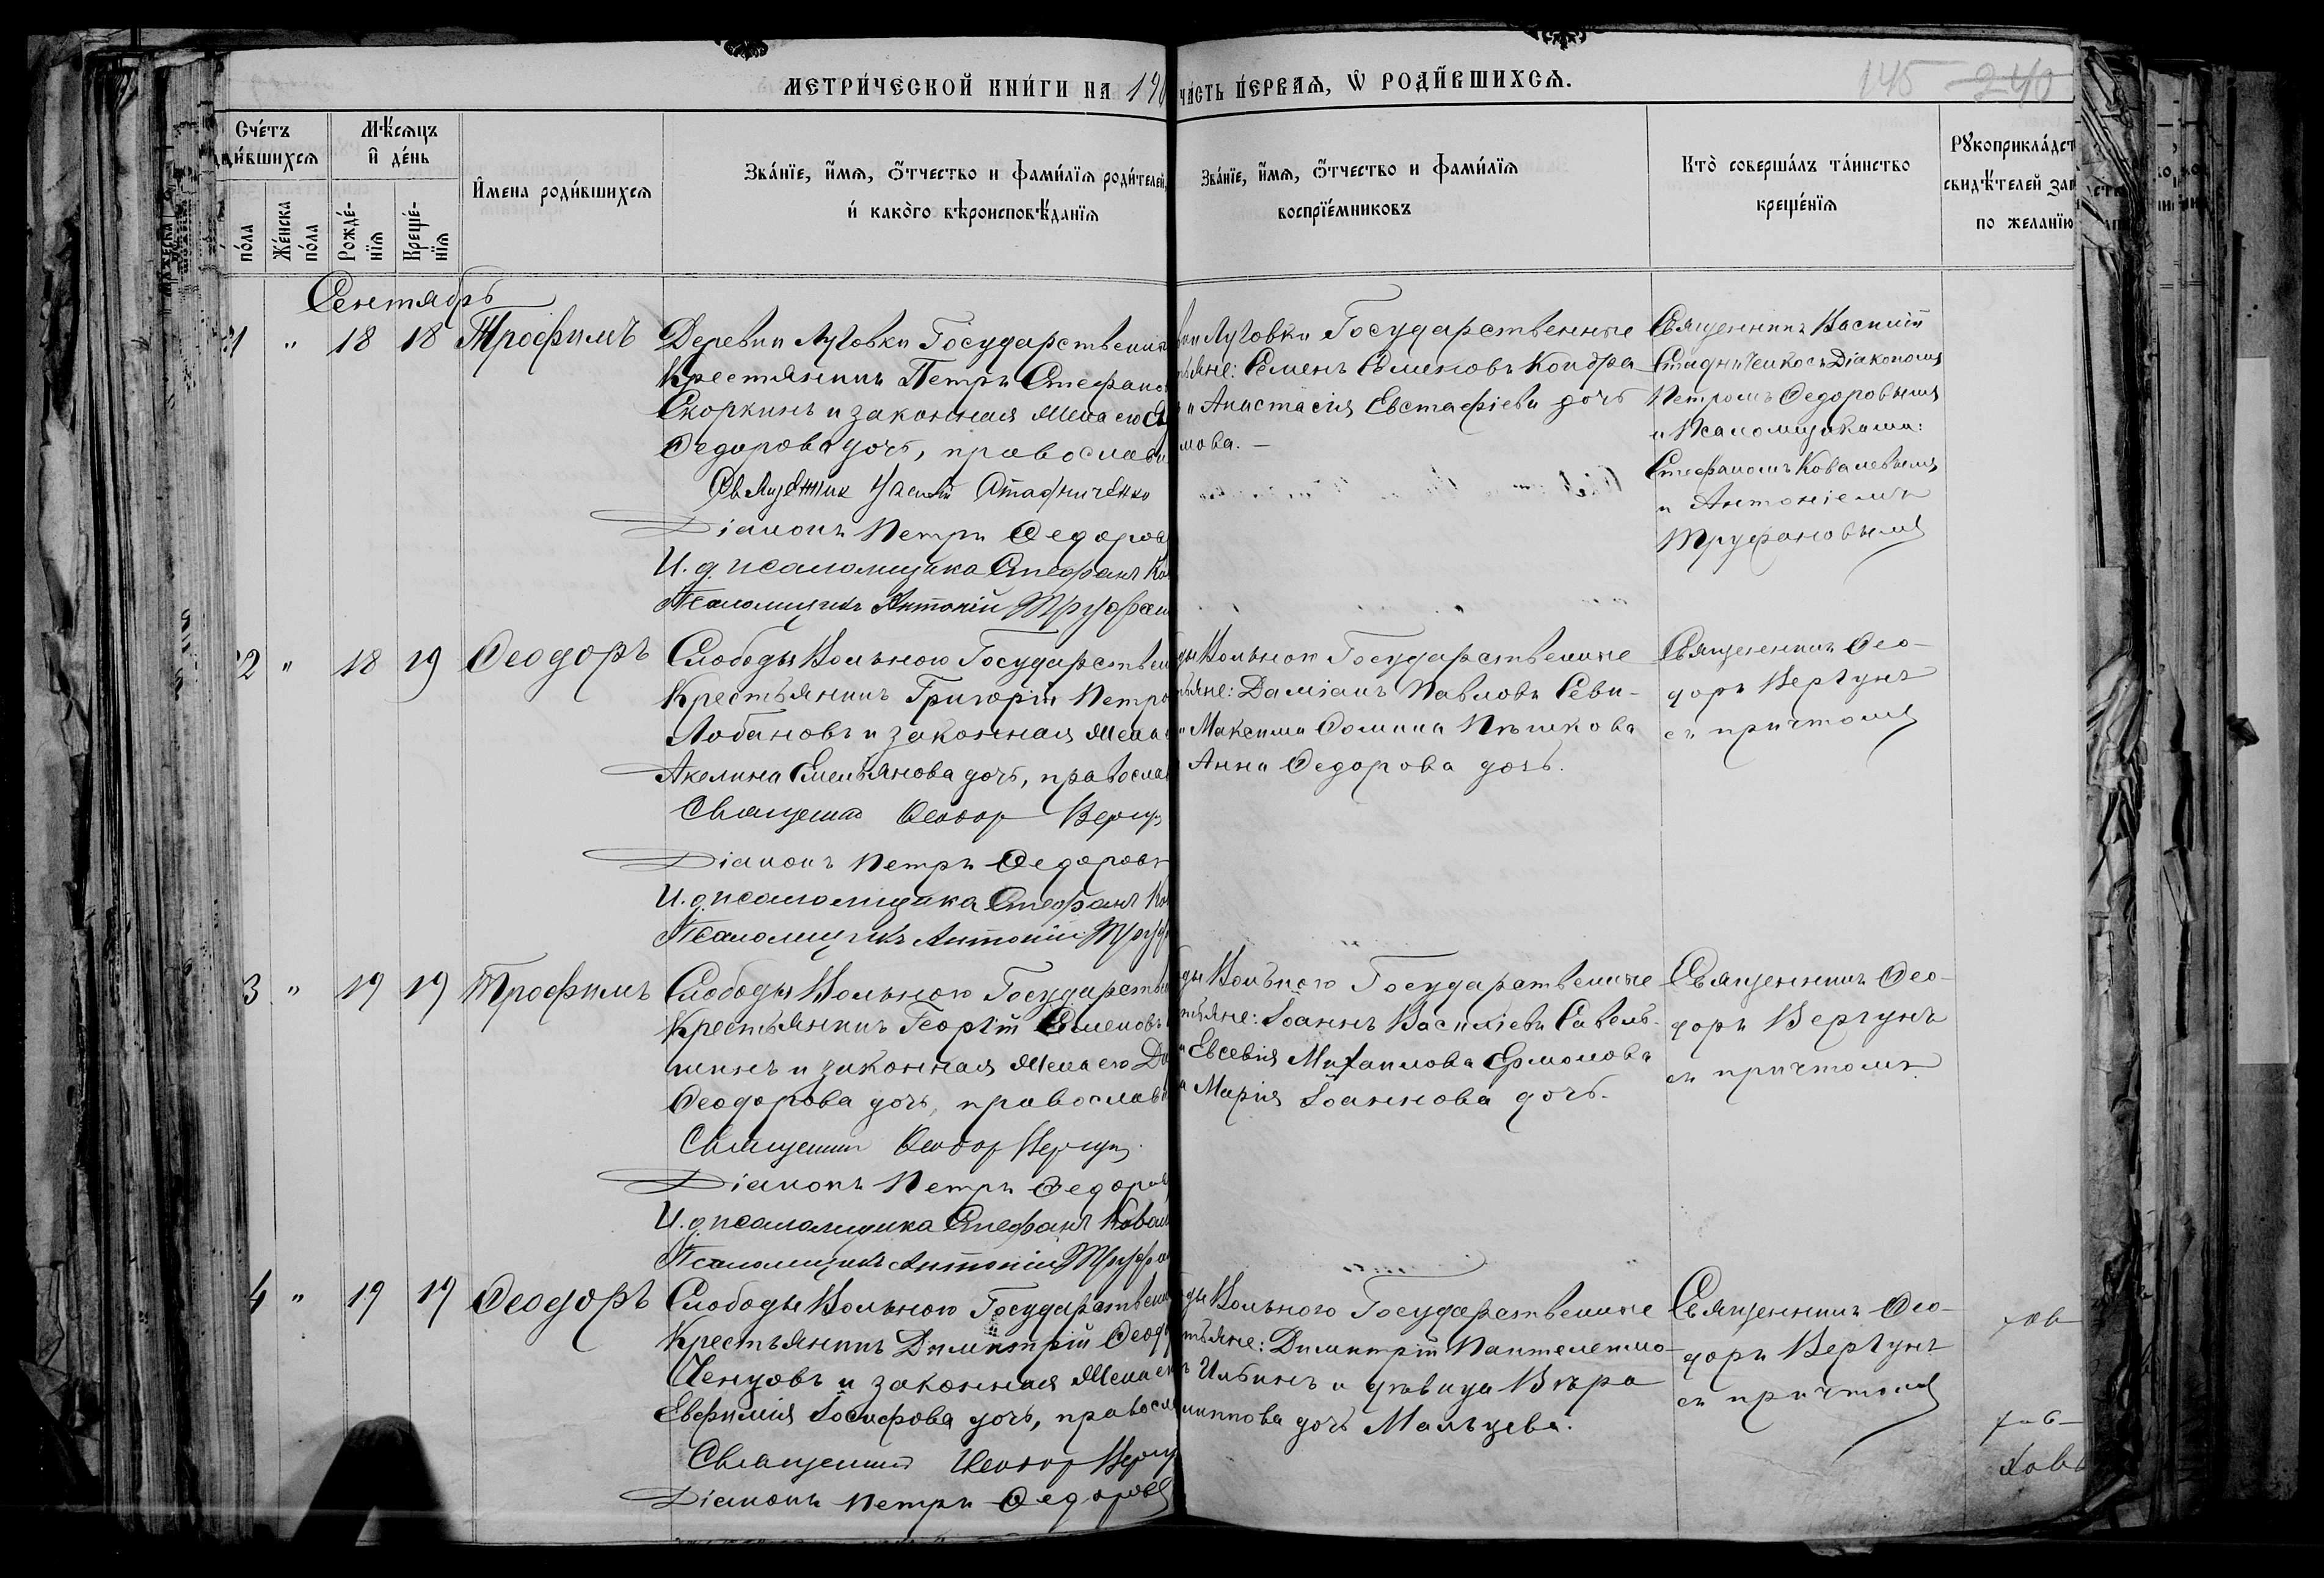 МЕТРИ́ЧЕСКОЙ КНИ́ГИ НА 190
ЧА́СТЬ ПЕ́РВАѦ, Ѡ РОДИ́ВШИХСѦ.
145 240
Сче́тъ
ди́вшихсѧ
Мѣ́сяцъ
и де́нь
И́мена роди́вшихсѧ
Зва́нїе, и́мѧ, ѻ́тчество и фами́лїѧ роди́телей,
и́ како̀го вѣроисповѣ́данїѧ
Зва́нїе, и́мѧ, ѻ́тчество и фами́лїѧ
воспрїе́мниковъ
Кто̀ соверша́лъ та́инство
креще́нїѧ
Рꙋкоприкла́дст
свидѣ́телей зап
по желанїю
по́ла
Же́нска
по́ла
Рожде́-
нїѧ
Креще́-
нїѧ
Сентябрь
21 " 18 18 Трофимъ
Деревни Луговки Государствен
Крестьянинъ Петръ Стефанов
Скоркинъ и законная жена его
Федорова дочь, православн
Священник Василий Стадниченко
Діаконъ Петръ Федоров
И. д. псаломщика Стефанъ Ко
Псаломщикъ Антоній Труфан
вни Луговки Государственные
тьяне: Семенъ Симеоновъ Кондра
и Анастасія Евстафіева дочь
мова. —
Священникъ Василій
Стадниченко съ Діакономъ
Петромъ Федоровымъ
и Псаломщиками:
Стефаномъ Ковалевымъ
и Антоніемъ
Труфановымъ
22 " 18 19 Феодоръ
Слободы Вольного Государствен
Крестьянинъ Григорій Петро
Лобановъ и законная жена
Акелина Емельянова дочь, православ
Священник Феодор Вергун
Діаконъ Петръ Федоров
И. д. псаломщика Стефанъ Ко
Псаломщикъ Антоній Труф
ды Вольного Государственные
тьяне: Даміанъ Павловъ Севи-
и Максима Фомина Пѣшкова
Анна Федорова дочь.
Священникъ Фео-
доръ Вергунъ
съ причтомъ
3 " 19 19 Трофимъ
Слободы Вольного Государствен
Крестьянинъ Георгій Семеновъ
шинъ и законная жена его
Феодорова дочь, православн
Священник Феодор Вергун
Діаконъ Петръ Федоров
И. д. псаломщика Стефанъ Ковал
Псаломщикъ Антоній Труфан
ды Вольного Государственные
тьяне: Іоаннъ Василіевъ Савель-
и Евсевія Михаилова Ермолова
Марія Іоаннова дочь.
Священникъ Фео-
доръ Вергунъ
съ причтомъ
4 " 19 19 Феодоръ
Слободы Вольного Государствен
Крестьянинъ Димитрій Феод
Ченцовъ и законная жена ег
Евфимія Іосифова дочь, правосл
Священник Феодор Вергун
Діаконъ Петръ Федоров
ды Вольного Государственные
тьяне: Димитрій Пантелеимо-
въ Ильинъ и дѣвица Вѣра
липпова дочь Мальцева.
Священникъ Фео-
доръ Вергунъ
съ причтомъ